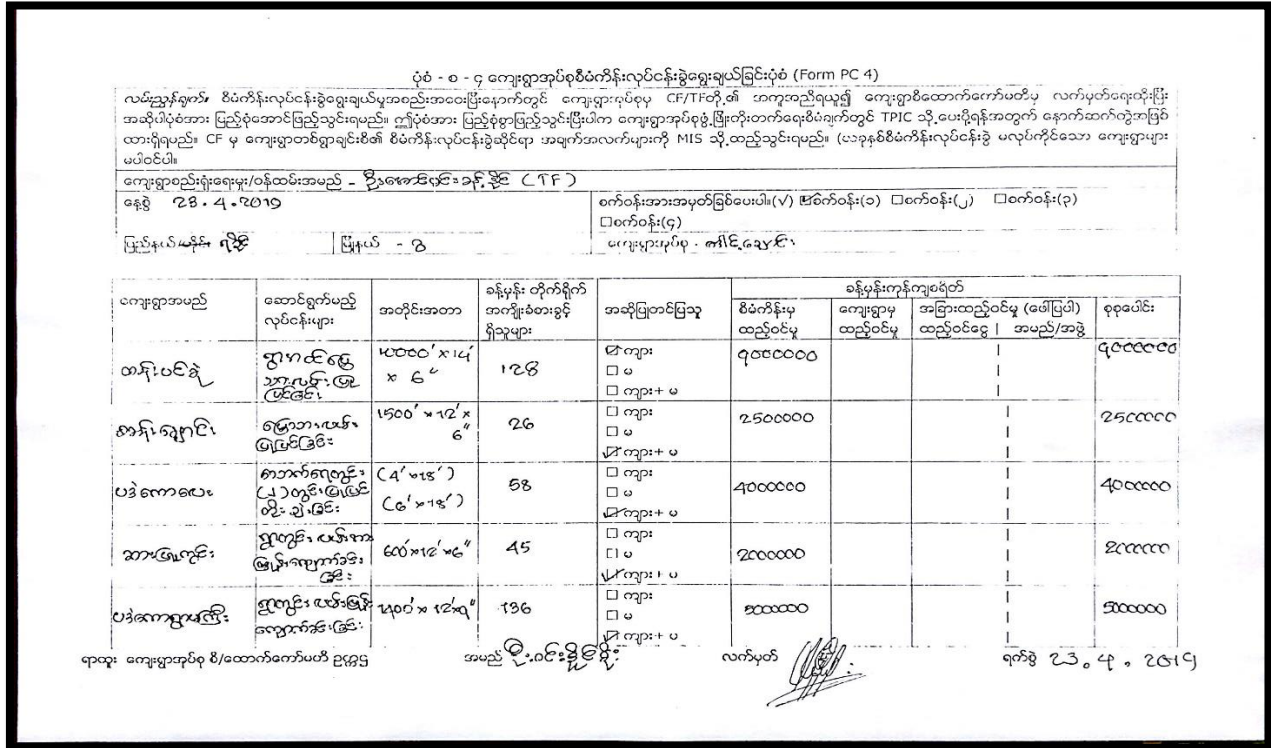 ပုံစံ - စ - ၄ ကျေးရွာအုပ်စုစီမံကိန်းလုပ်ငန်းခွဲရွေးချယ်ခြင်းပုံစံ (Form PC 4)
လမ်းညွှန်ချက်။ စီမံကိန်းလုပ်ငန်းခွဲရွေးချယ်မှုအစည်းအဝေးပြီးနောက်တွင် ကျေးရွာအုပ်စုမှ CF/TFတို့၏ အကူအညီရယူ၍ ကျေးရွာစီထောက်ကော်မတီမှ လက်မှတ်ရေးထိုးပြီး
အဆိုပါပုံစံအား ပြည့်စုံအောင်ဖြည့်သွင်းရမည်။ ဤပုံစံအား ပြည့်စုံစွာဖြည့်သွင်းပြီးပါက ကျေးရွာအုပ်စုဖွံ့ဖြိုးတိုးတက်ရေးစီမံချက်တွင် TPIC သို့ ပေးပို့ရန်အတွက် နောက်ဆက်တွဲအဖြစ်
ထားရှိရမည်။ CF မှ ကျေးရွာတစ်ရွာချင်းစီ၏ စီမံကိန်းလုပ်ငန်းခွဲဆိုင်ရာ အချက်အလက်များကို MIS သို့ ထည့်သွင်းရမည်။ (ယခုနှစ်စီမံကိန်းလုပ်ငန်းခွဲ မလုပ်ကိုင်သော ကျေးရွာများ
မပါဝင်ပါ။
ကျေးရွာစည်းရုံးရေးမှူး/ဝန်ထမ်းအမည် - ဦးအောင်ဝင်းခန့်နိုင် (TF)
နေ့စွဲ 23.4.2019 စက်ဝန်းအားအမှတ်ခြစ်ပေးပါ။(√) ☑စက်ဝန်း(၁) □စက်ဝန်း(၂) □စက်ဝန်း(၃)
□စက်ဝန်း(၄)
ပြည်နယ်/တိုင်း ရခိုင် မြို့နယ် - ဂွ ကျေးရွာအုပ်စု -
ကျေးရွာအမည် ဆောင်ရွက်မည့် လုပ်ငန်းများ အတိုင်းအတာ ခန့်မှန်း တိုက်ရိုက် အကျိုးခံစားခွင့် ရှိသူများ အဆိုပြုတင်ပြသူ ခန့်မှန်းကုန်ကျစရိတ်
စီမံကိန်းမှ ထည့်ဝင်မှု ကျေးရွာမှ ထည့်ဝင်မှု အခြားထည့်ဝင်မှု (ဖော်ပြပါ) ထည့်ဝင်ငွေ | အမည်/အဖွဲ့ စုစုပေါင်း
ထန်းပင်ခွဲ ရွာတွင်းမြေသားလမ်းပြုပြင်ခြင်း x14' x 6" 128 ☑ ကျား □ မ □ ကျား+ မ 9000000 9000000
စာန်းချောင်း မြေသားလမ်း ပြုပြင်ခြင်း 1500' x 12' x 6" 26 □ ကျား □ မ ☑ ကျား+ မ 2500000 2500000
ပဒဲကောလေး ရေတွင်း (၂) တွင်း ပြုပြင် တိုးချဲ့ခြင်း (4' x 18') (6' x 18') 58 □ ကျား □ မ ☑ ကျား+ မ 4000000 4000000
ဆားပြုကွင်း ရွာတွင်းလမ်း ကျောက်ခင်းခြင်း 600' x 12' x 6" 45 □ ကျား □ မ ☑ ကျား+ မ 2000000 2000000
ပဒဲကောရွာမကြီး ရွာတွင်းလမ်း ကျောက်ခင်းခြင်း x 12' x 9" 136 □ ကျား □ မ ☑ ကျား+ မ 5000000 5000000
ရာထူး ကျေးရွာအုပ်စု စီ/ထောက်ကော်မတီ ဥက္ကဌ အမည် ဝင်း လက်မှတ် ရက်စွဲ 23.4.2019